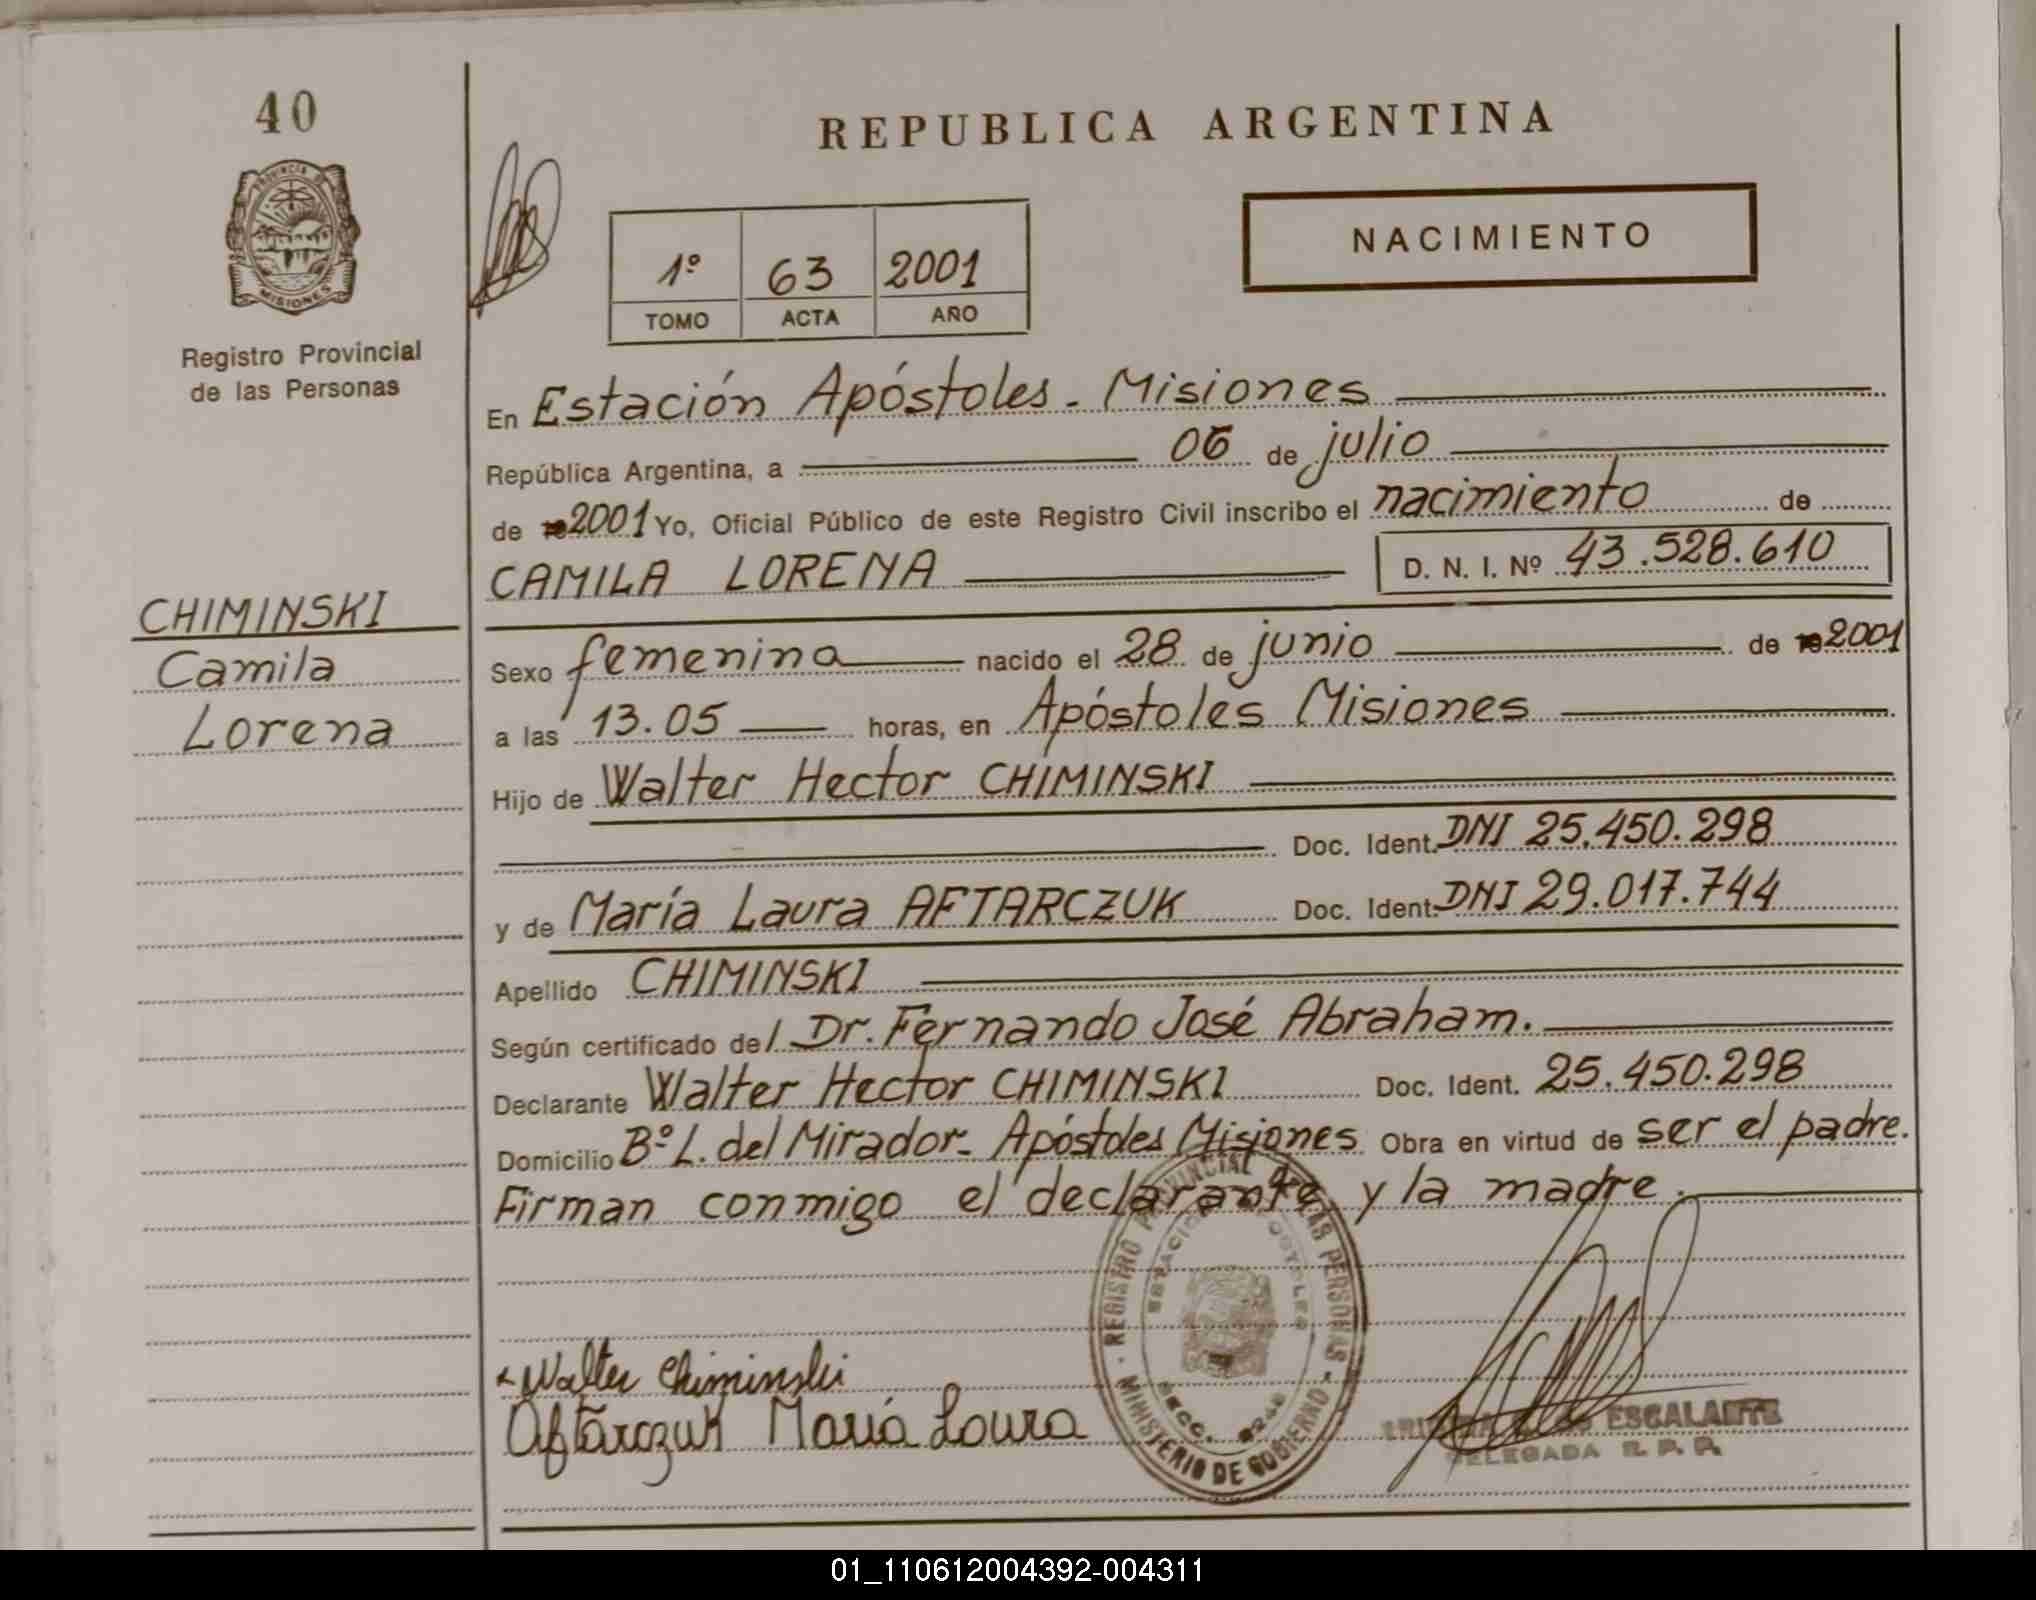 40
PROVINCIA DE
MISIONES
Registro Provincial
de las Personas
CHIMINSKI
Camila
Lorena
REPUBLICA ARGENTINA
1º 63 2001
TOMO ACTA AÑO
NACIMIENTO
En Estación Apóstoles - Misiones
República Argentina, a 06 de julio
de 2001 Yo, Oficial Público de este Registro Civil inscribo el nacimiento de
CAMILA LORENA D. N. I. Nº 43.528.610
Sexo femenina nacido el 28 de junio de 2001
a las 13.05 horas, en Apóstoles Misiones
Hijo de Walter Hector CHIMINSKI
Doc. Ident. DNI 25.450.298
y de María Laura AFTARCZUK Doc. Ident. DNI 29.017.744
Apellido CHIMINSKI
Según certificado del Dr. Fernando José Abraham.
Declarante Walter Hector CHIMINSKI Doc. Ident. 25.450.298
Domicilio Bº L. del Mirador - Apóstoles Misiones Obra en virtud de ser el padre.
Firman conmigo el declarante y la madre.
REGISTRO PROVINCIAL DE LAS PERSONAS
MINISTERIO DE GOBIERNO
Walter Chiminski
Aftarczuk María Laura
ESCALANTE
DELEGADA R. P. P.
01_110612004392-004311